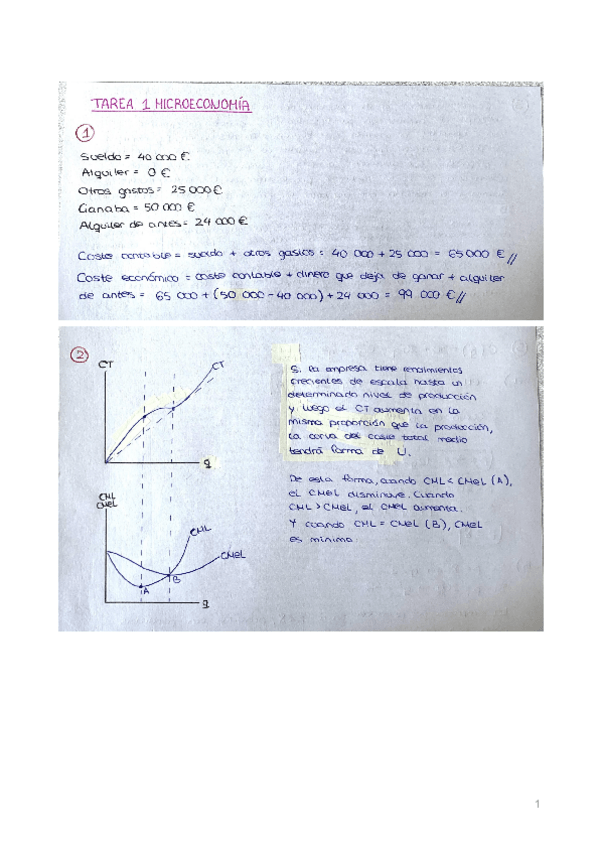 TAREA 1 MICROECONOMÍA
1
Sueldo = 40 000 €
Alquiler = 0 €
Otros gastos = 25 000 €
Ganaba = 50 000 €
Alquiler de antes = 24 000 €
Coste contable = sueldo + otros gastos = 40 000 + 25 000 = 65 000 € //
Coste económico = coste contable + dinero que deja de ganar + alquiler
de antes = 65 000 + (50 000 - 40 000) + 24 000 = 99 000 € //
2
CT
CT
q
Si la empresa tiene rendimientos
crecientes de escala hasta un
determinado nivel de producción
y luego el CT aumenta en la
misma proporción que la producción,
la curva del coste total medio
tendrá forma de U.
De esta forma, cuando CML < CMeL (A),
el CMeL disminuye. Cuando
CML > CMeL, el CMeL aumenta.
Y cuando CML = CMeL (B), CMeL
es mínimo.
CML
CMeL
CML
CMeL
A
B
q
1